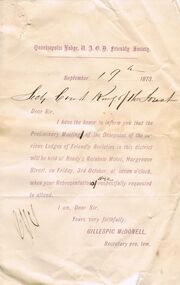 Quartzopolis Lodge, U.A.O.D. Friendly Society.
September 19th 1873.
Secy Court King of the Forest
Dear Sir,
I have the honor to inform you that the
Preliminary Meeting of the Delegates of the va-
rious Lodges of Friendly Societies in this district
will be held at Handy's Rainbow Hotel, Hargreaves
Street, on Friday, 3rd October, at seven o'clock,
when your Representatives are respectfully requested
to attend.
I am, Dear Sir,
Yours very faithfully,
GILLESPIE McDOWELL,
Secretary pro. tem.